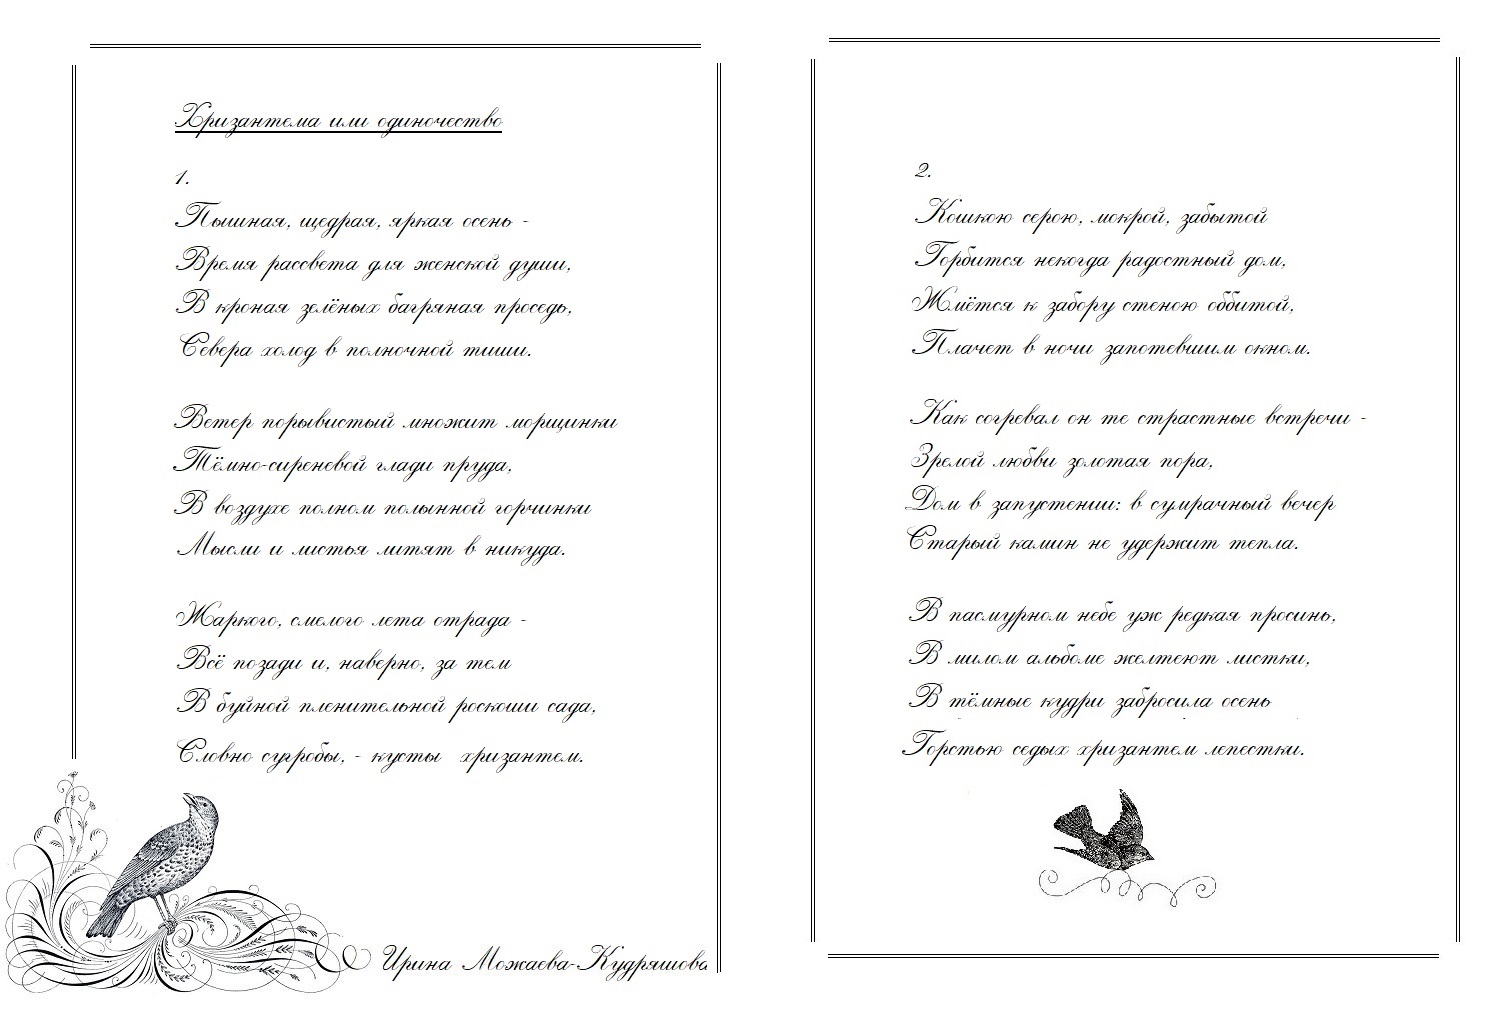 Хризантема или одиночество
1.
Пышная, щедрая, яркая осень -
Время рассвета для женской души,
В кронах зелёных багряная проседь,
Севера холод в полночной тиши.
Ветер порывистый множит морщинки
Тёмно-сиреневой глади пруда,
В воздухе полном полынной горчинки
Мысли и листья летят в никуда.
Жаркого, смелого лета отрада -
Всё позади и, наверно, за тем
В буйной пленительной роскоши сада,
Словно сугробы, - кусты хризантем.
Ирина Можаева-Кудряшова
2.
Кошкою серою, мокрой, забытой
Горбится некогда радостный дом,
Жмётся к забору стеною оббитой,
Плачет в ночи запотевшим окном.
Как согревал он те страстные встречи -
Зрелой любви золотая пора,
Дом в запустении: в сумрачный вечер
Старый камин не удержит тепла.
В пасмурном небе уж редкая просинь,
В милом альбоме желтеют листки,
В тёмные кудри забросила осень
Горстью седых хризантем лепестки.